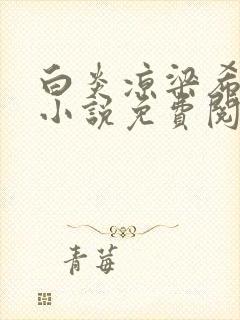 白炎凉梁希
小说免费阅
青莓